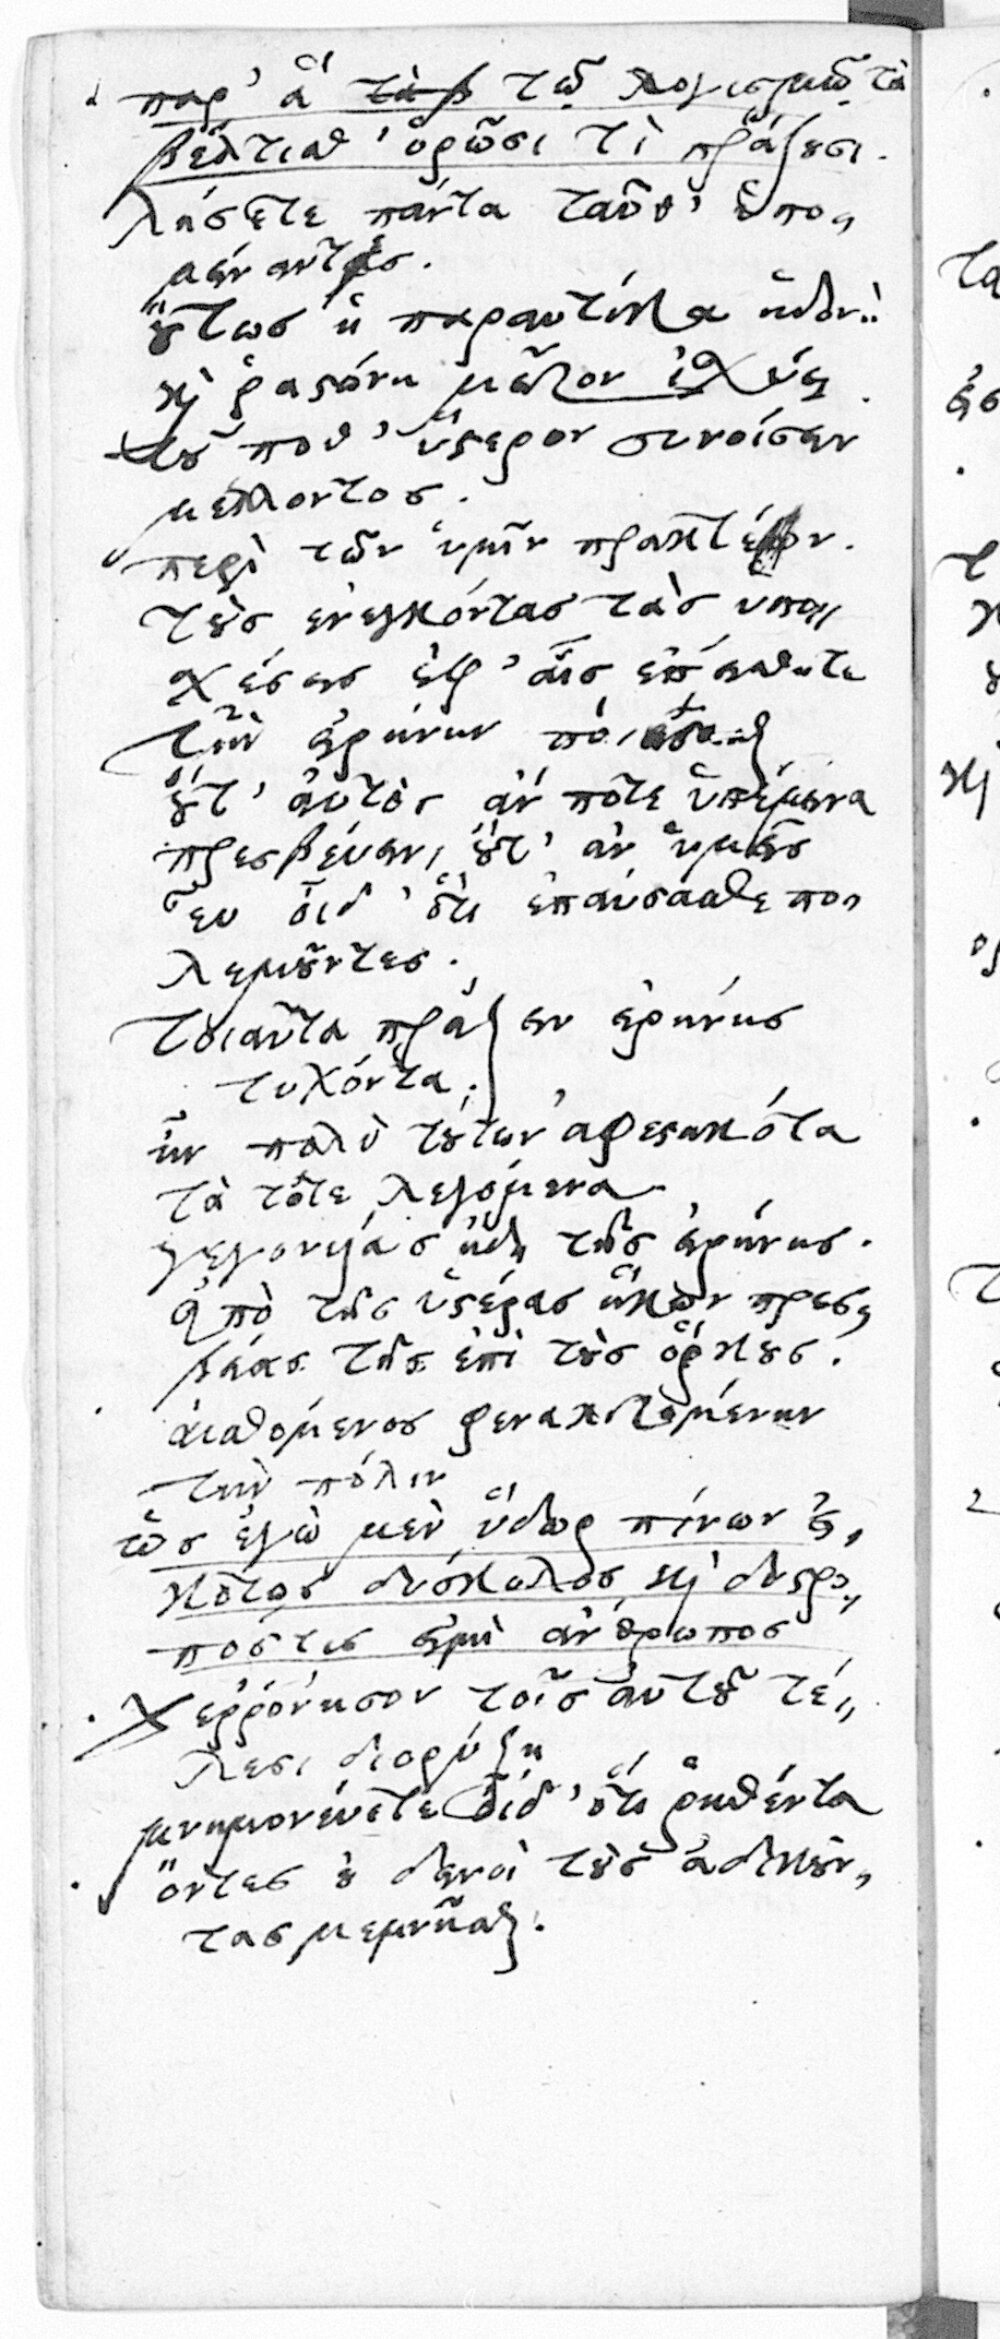 παρ' ἃ τῷ λογισμῷ τὰ
βέλτισθ' ὁρῶσι τί πράξουσι.
λήσετε πάντα ταῦθ' ὑπο,,
μείναντες.
οὕτως ἡ παραυτίκα ἡδονὴ
καὶ ῥαστώνη μεῖζον ἰσχύει
τοῦ ποθ' ὕστερον συνοίσειν
μέλλοντος.
περὶ τῶν ὑμῖν πρακτέων.
τοὺς ἐνεγκόντας τὰς ὑπο,,
σχέσεις ἐφ' αἷς ἐπείσθητε
τὴν εἰρήνην ποιήσασθαι
οὔτ' αὐτὸς ἄν ποτε ὑπέμεινα
πρεσβεύειν, οὔτ' ἂν ὑμεῖς
εὖ οἶδ' ὅτι ἐπαύσασθε πο,,
λεμοῦντες.
τοιαῦτα πράξειν εἰρήνης
τυχόντα.
ἦν πολὺ τούτων ἀφεστηκότα
τὰ τότε λεγόμενα
γεγονυίας ἤδη τῆς εἰρήνης.
ἀπὸ τῆς ὑστέρας ἥκων πρεσ,,
βείας τῆς ἐπὶ τοὺς ὅρκους.
αἰσθόμενος φενακιζομένην
τὴν πόλιν
ὡς ἐγὼ μὲν ὕδωρ πίνων εἰ,,
κότως δύσκολος καὶ δύστρο,,
πός τις εἰμὶ ἄνθρωπος
χερρόνησον τοῖς αὐτοῦ τέ,,
λεσι διορύξει
μνημονεύετε οἶδ' ὅτι ῥηθέντα
ὄντες οὐ δεινοὶ τοὺς ἀδικοῦν,,
τας μεμνῆσθαι.